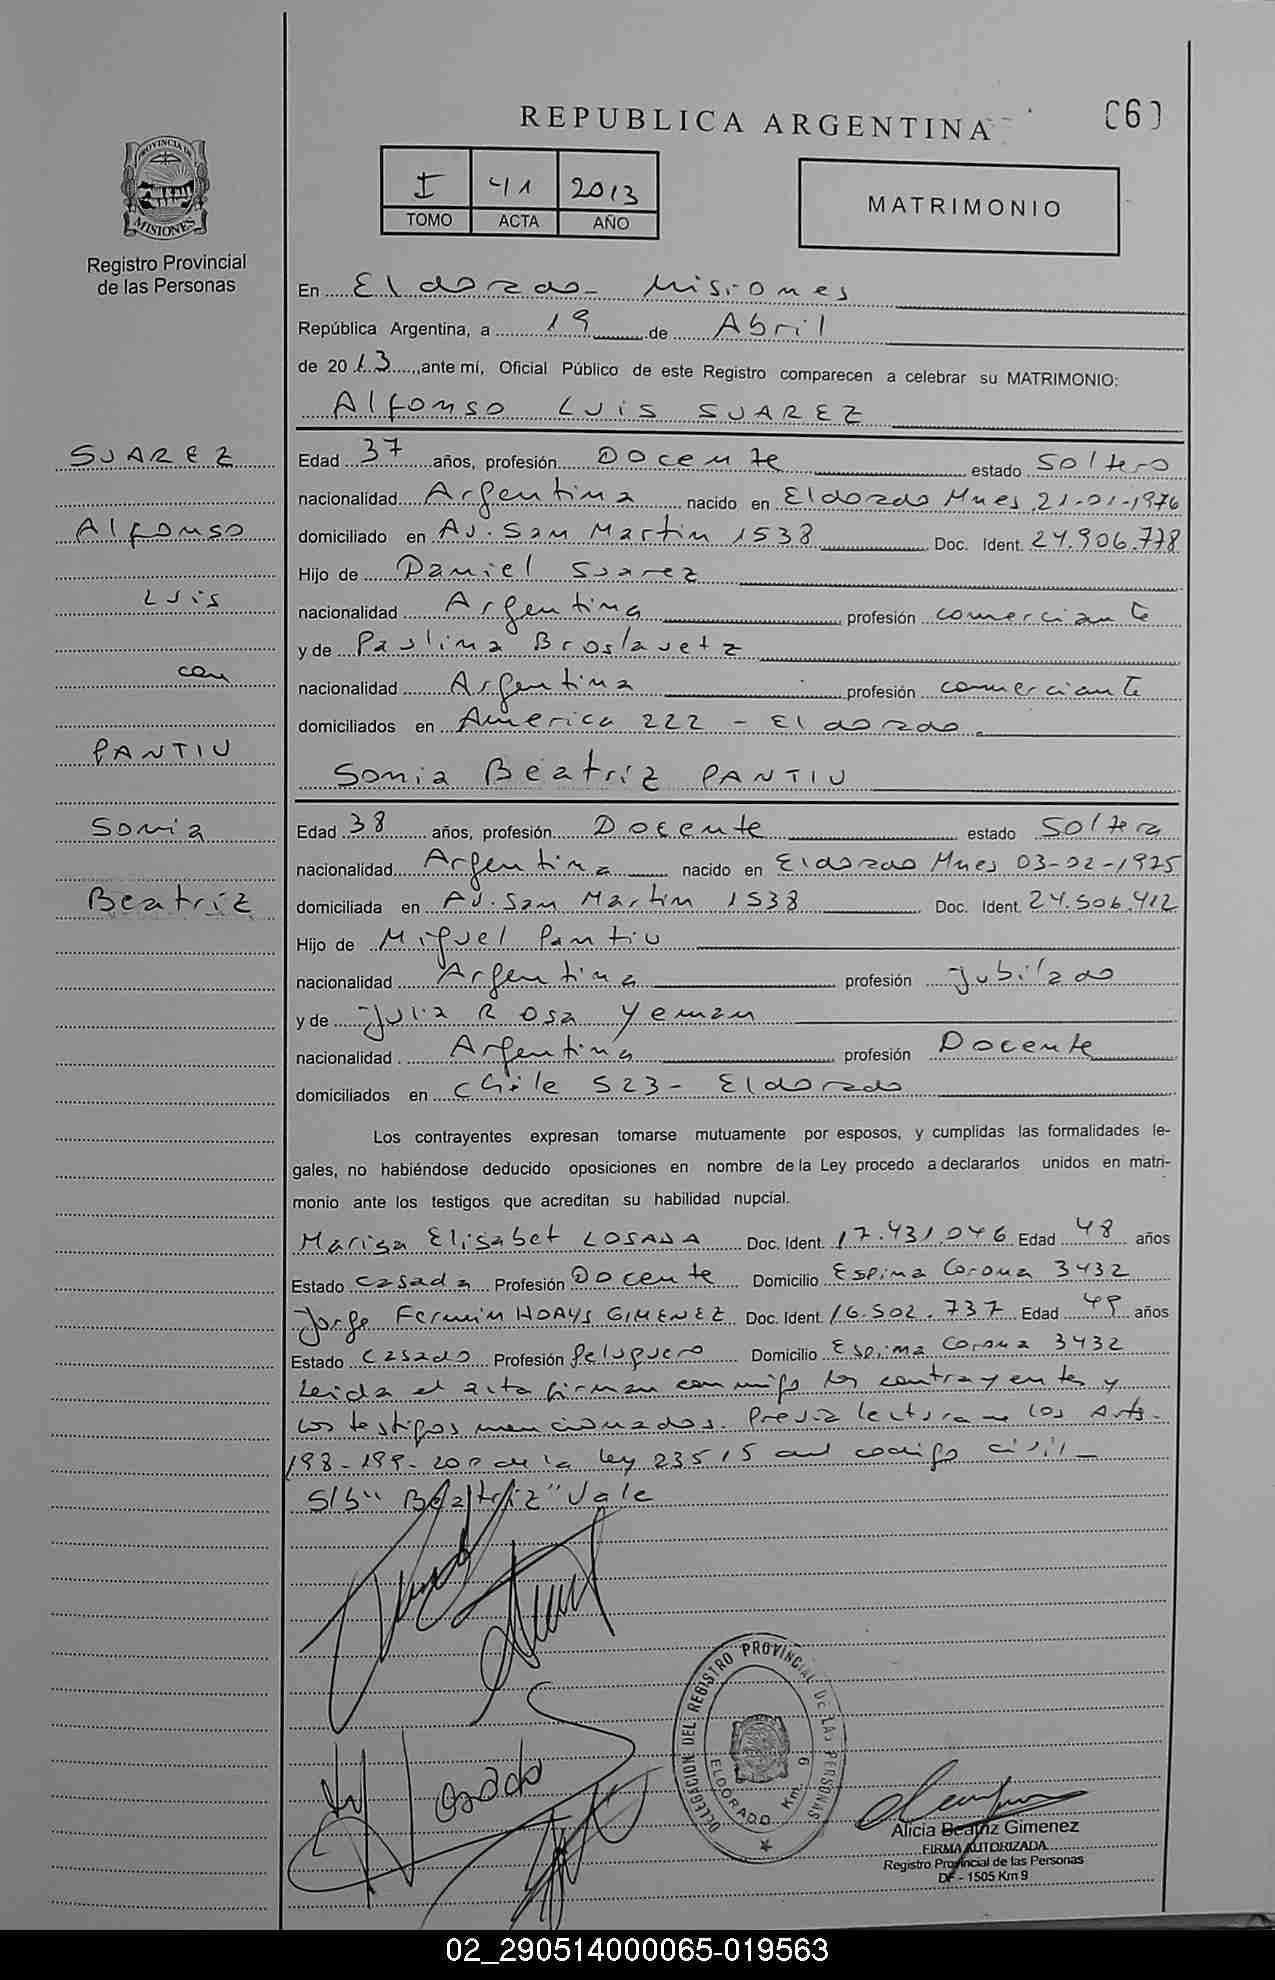 REPUBLICA ARGENTINA
(6)
PROVINCIA DE
MISIONES
Registro Provincial
de las Personas
I 41 2013
TOMO ACTA AÑO
MATRIMONIO
En Eldorado - Misiones
República Argentina, a 19 de Abril
de 2013, ante mí, Oficial Público de este Registro comparecen a celebrar su MATRIMONIO:
Alfonso Luis SUAREZ
SUAREZ
Alfonso
Luis
con
PANTIU
Sonia
Beatriz
Edad 37 años, profesión Docente estado Soltero
nacionalidad Argentina nacido en Eldorado Mnes 21-01-1976
domiciliado en Av. San Martin 1538 Doc. Ident. 24.906.778
Hijo de Daniel Suarez
nacionalidad Argentina profesión comerciante
y de Paulina Broslavetz
nacionalidad Argentina profesión comerciante
domiciliados en America 222 - Eldorado.
Sonia Beatriz PANTIU
Edad 38 años, profesión Docente estado Soltera
nacionalidad Argentina nacido en Eldorado Mnes 03-02-1975
domiciliada en Av. San Martin 1538 Doc. Ident. 24.506.412
Hijo de Miguel Pantiu
nacionalidad Argentina profesión jubilado
y de Julia Rosa Yeman
nacionalidad Argentina profesión Docente
domiciliados en Chile 523 - Eldorado
Los contrayentes expresan tomarse mutuamente por esposos, y cumplidas las formalidades le-
gales, no habiéndose deducido oposiciones en nombre de la Ley procedo a declararlos unidos en matri-
monio ante los testigos que acreditan su habilidad nupcial.
Marisa Elisabet LOSADA Doc. Ident. 17.431.046 Edad 48 años
Estado Casada Profesión Docente Domicilio Espina Corona 3432
Jorge Fermin HDAYS GIMENEZ Doc. Ident. 16.502.737 Edad 49 años
Estado Casado Profesión Peluquero Domicilio Espina Corona 3432
Leida el acta firman conmigo los contrayentes y
los testigos mencionados. Previa lectura de los Arts.
198-199-200 de la ley 23515 del codigo civil -
S/b "Beatriz" Vale
Losada
DELEGACION DEL REGISTRO PROVINCIAL DE LAS PERSONAS
ELDORADO Km. 9
Alicia Beatriz Gimenez
FIRMA AUTORIZADA
Registro Provincial de las Personas
DF - 1505 Km 9
02_290514000065-019563